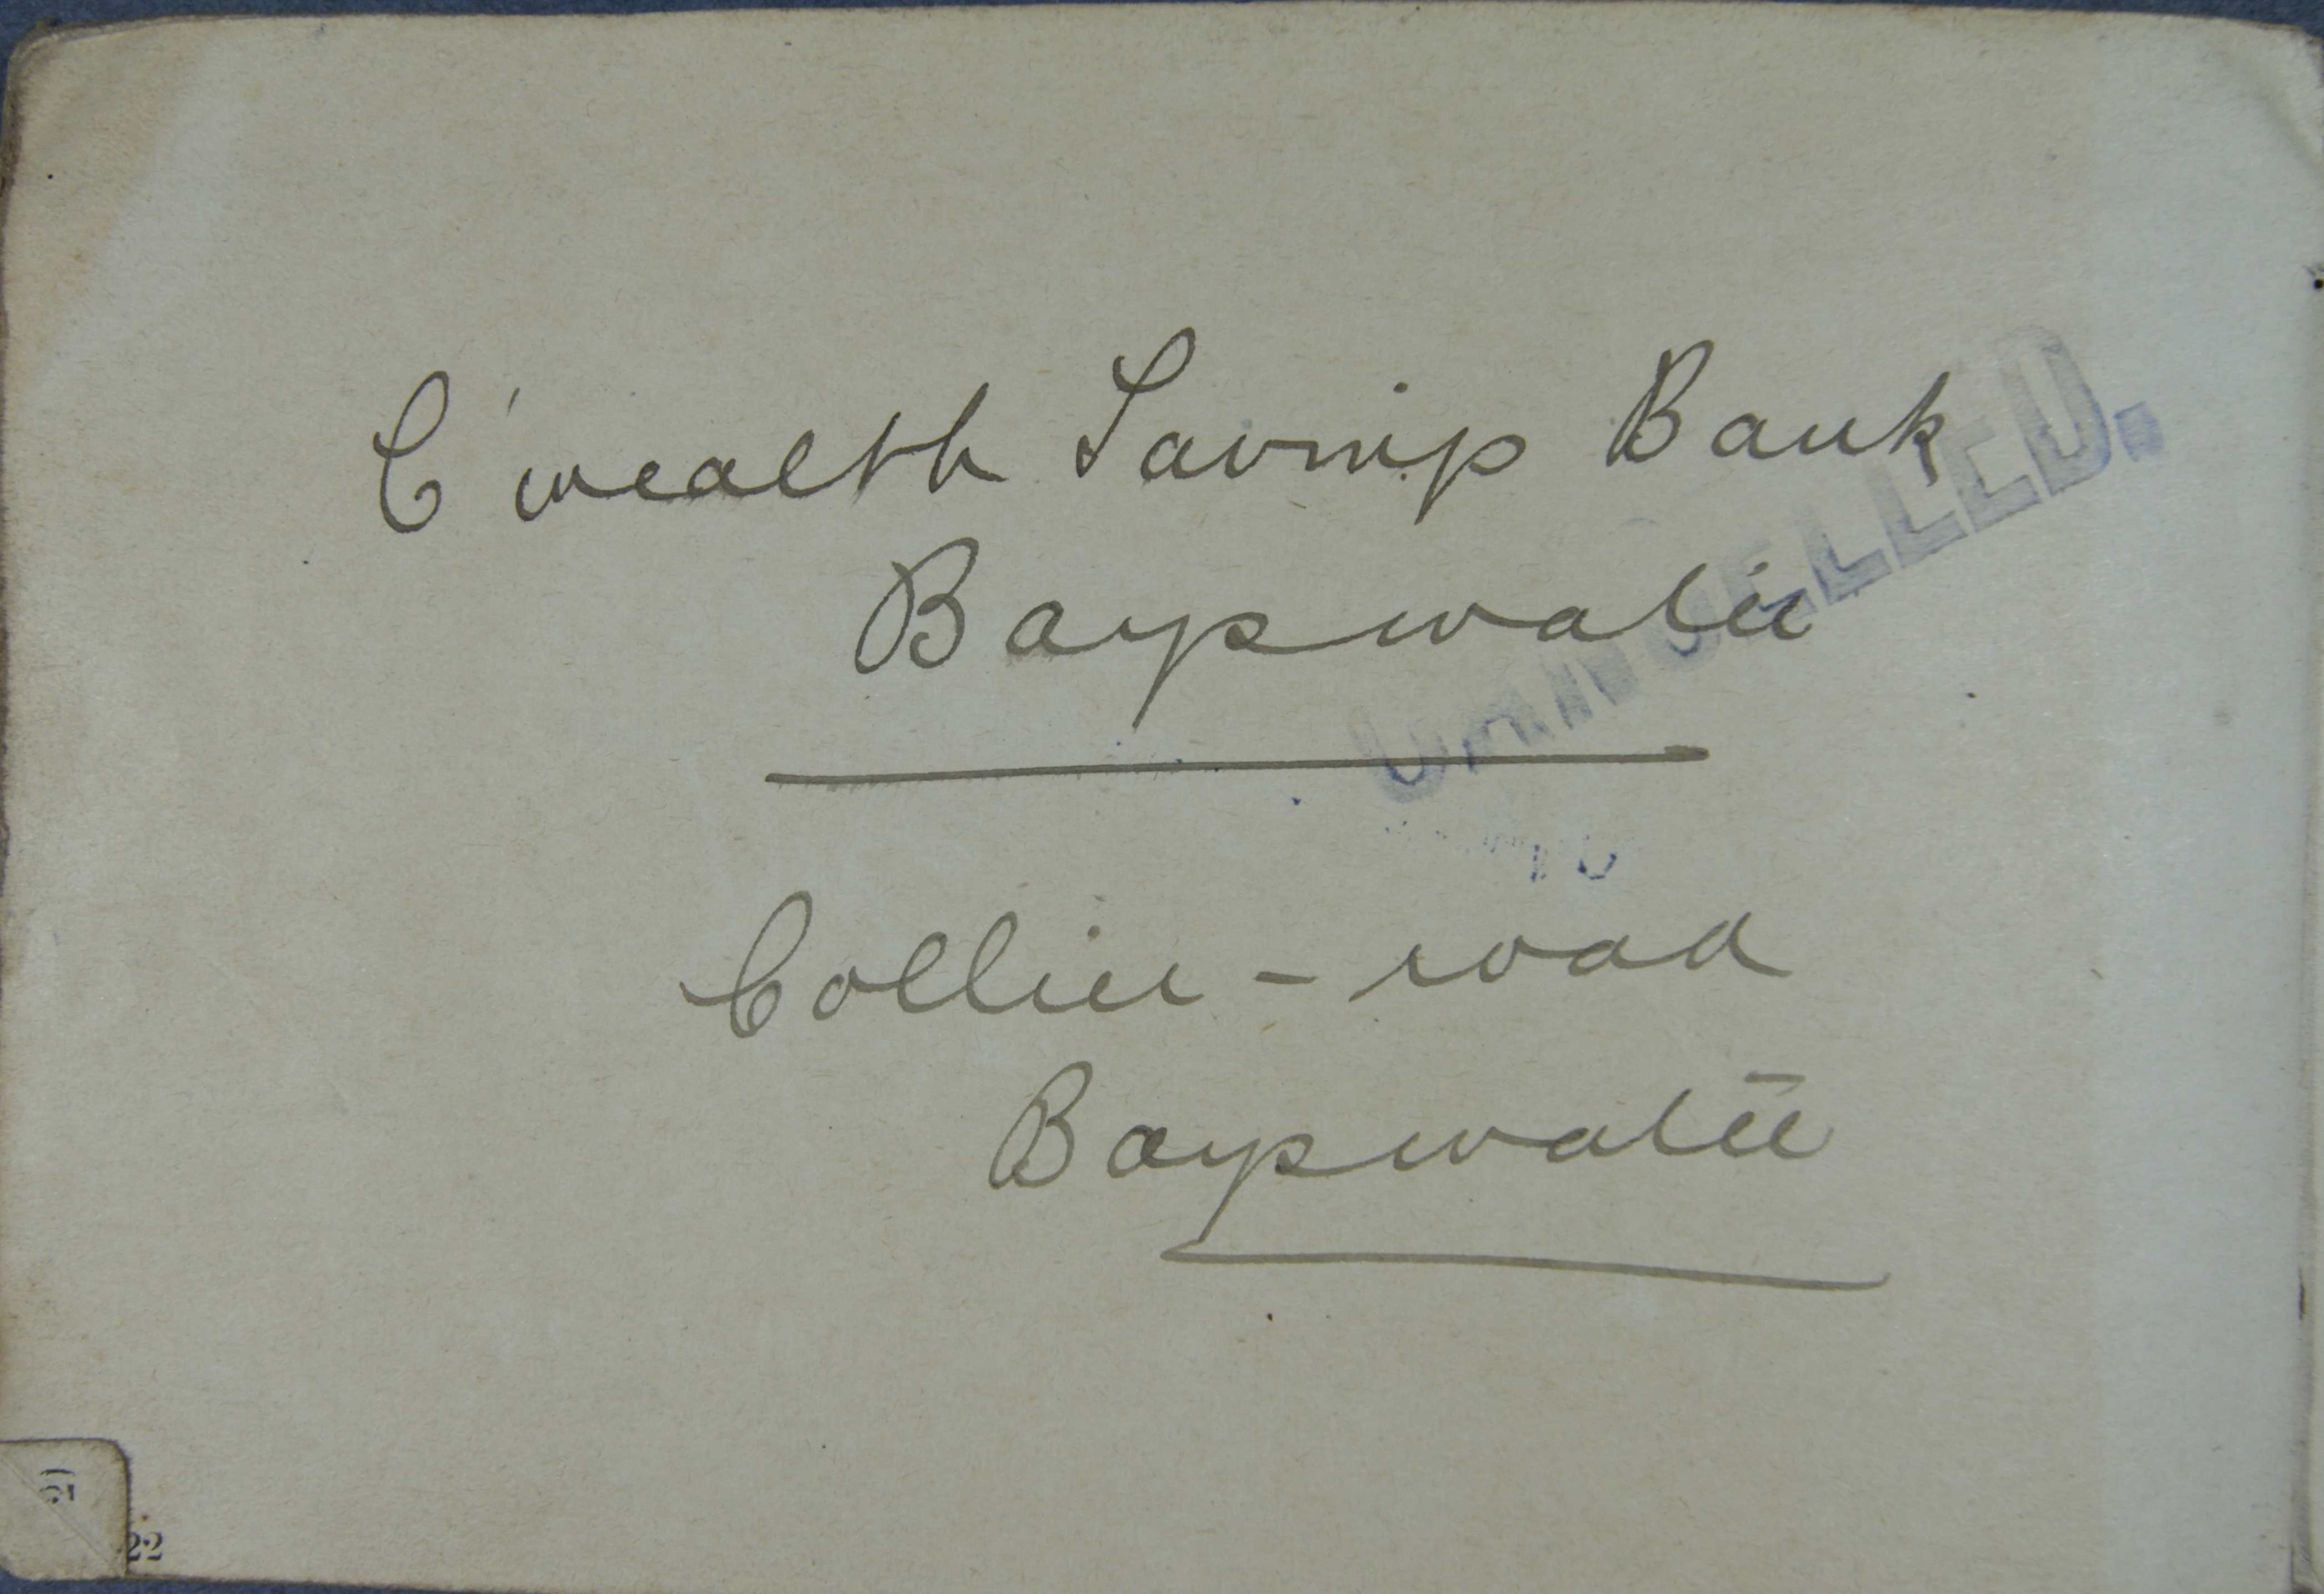 C'wealth Savings Bank
Bayswater
CANCELLED.
Collier - road
Bayswater
21
22